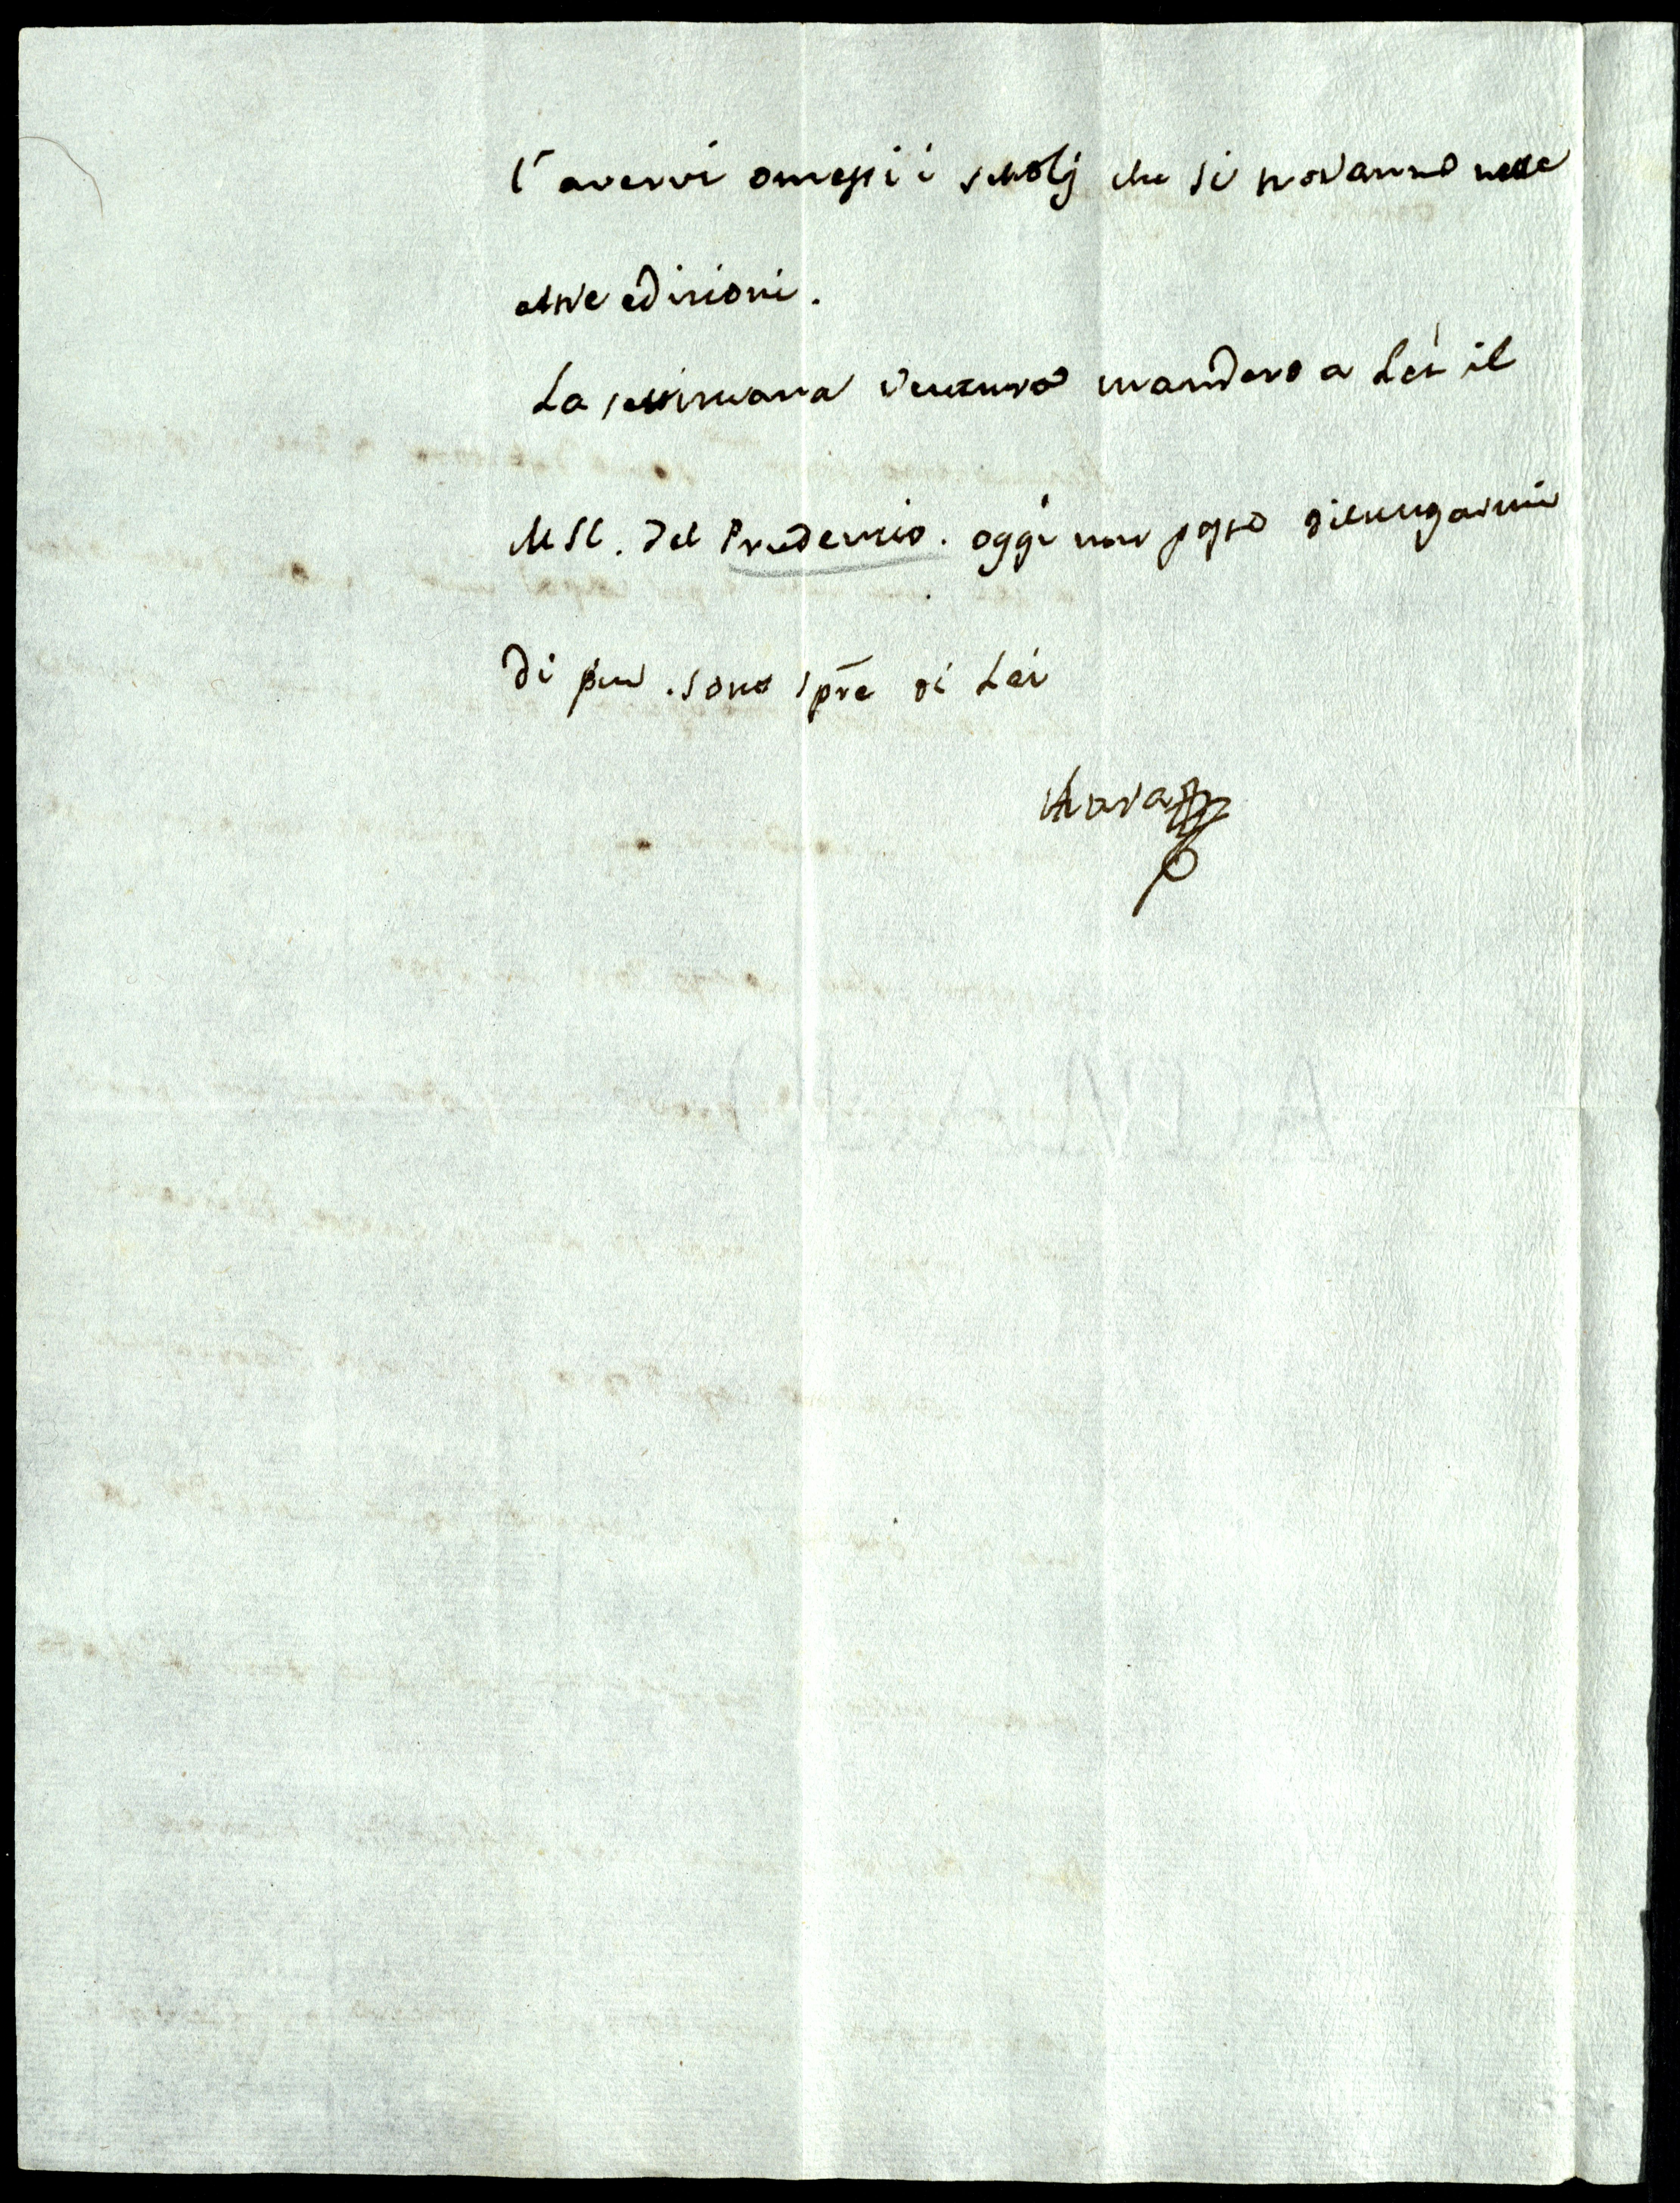 l'avervi omessi i scholj che si trovanno nelle
altre edizioni.
La settimana ventura manderò a Lei il
MSC. del Prudenzio. oggi non posso dilungarmi
di più. sono spre di Lei